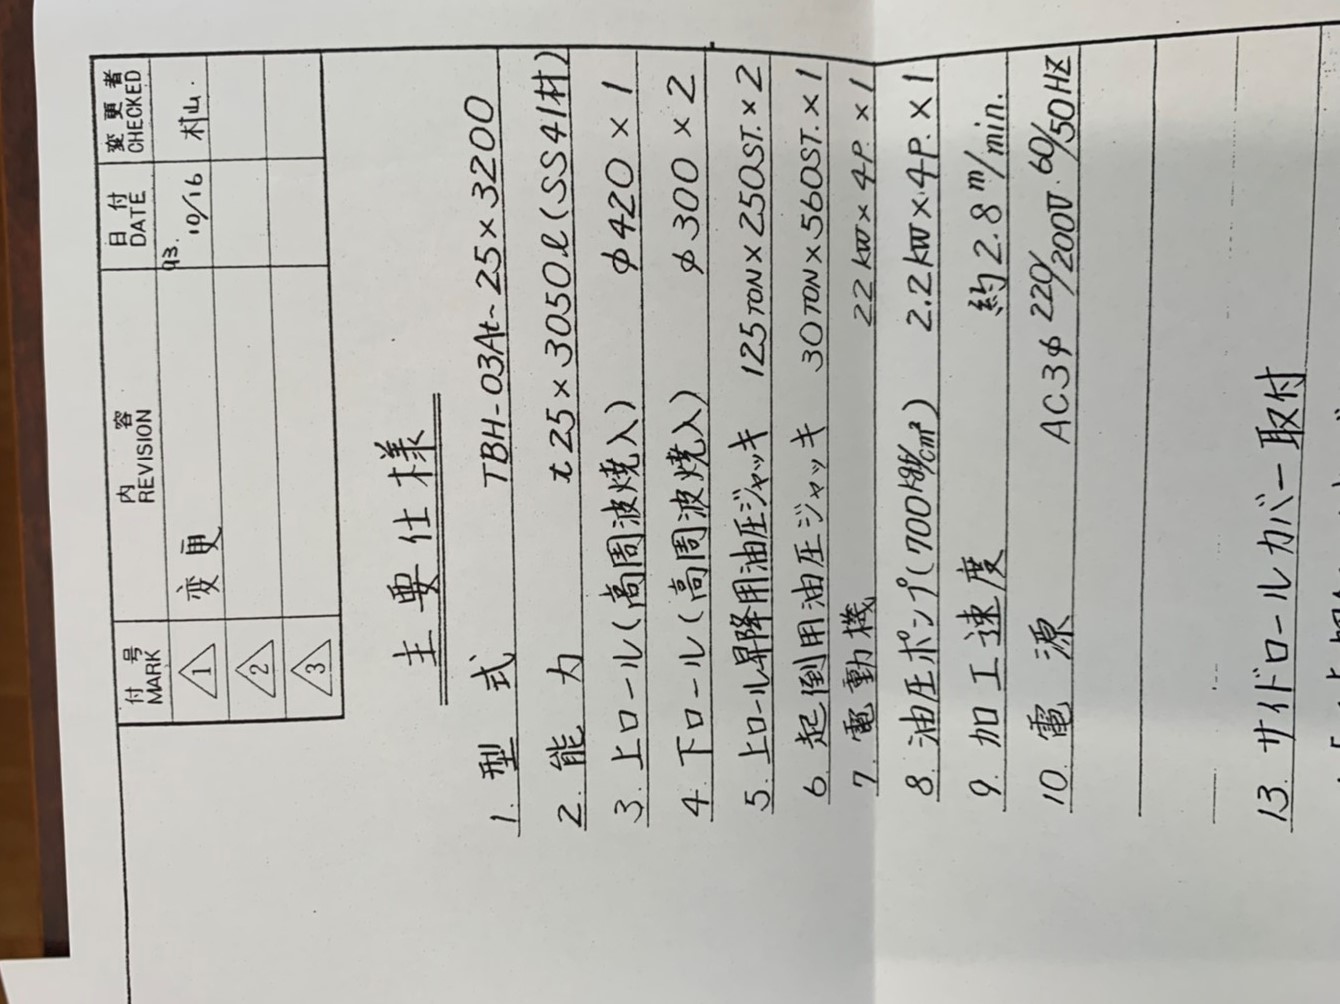 付号 MARK 内容 REVISION 日付 DATE 変更者 CHECKED
1 変更 '93. 10/16 村山.
2
3
主要仕様
1. 型式 TBH-03At-25×3200
2. 能力 t25×3050ℓ(SS41材)
3. 上ロール(高周波焼入) φ420×1
4. 下ロール(高周波焼入) φ300×2
5. 上ロール昇降用油圧ジャッキ 125TON×250ST.×2
6. 起倒用油圧ジャッキ 30TON×560ST.×1
7. 電動機 22kW×4P.×1
8. 油圧ポンプ(700kgf/cm²) 2.2kW×4P.×1
9. 加工速度 約2.8m/min.
10. 電源 AC3φ 220/200V・60/50HZ
13. サイドロールカバー取付